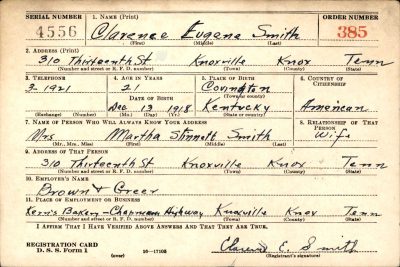 SERIAL NUMBER 1. NAME (Print) ORDER NUMBER
4556 Clarence Eugene Smith 385
(First) (Middle) (Last)
2. ADDRESS (Print)
310 Thirteenth St Knoxville Knox Tenn
(Number and street or R. F. D. number) (Town) (County) (State)
3. TELEPHONE 4. AGE IN YEARS 5. PLACE OF BIRTH 6. COUNTRY OF CITIZENSHIP
3-1921 21 Covington
DATE OF BIRTH (Town or county)
Dec 13 1918 Kentucky American
(Exchange) (Number) (Mo.) (Day) (Yr.) (State or country)
7. NAME OF PERSON WHO WILL ALWAYS KNOW YOUR ADDRESS 8. RELATIONSHIP OF THAT PERSON
Mrs Martha Stinnett Smith Wife
(Mr., Mrs., Miss) (First) (Middle) (Last)
9. ADDRESS OF THAT PERSON
310 Thirteenth St Knoxville Knox Tenn
(Number and street or R. F. D. number) (Town) (County) (State)
10. EMPLOYER'S NAME
Brown & Greer
11. PLACE OF EMPLOYMENT OR BUSINESS
Kern's Bakery-Chapman Highway Knoxville Knox Tenn
(Number and street or R. F. D. number) (Town) (County) (State)
I AFFIRM THAT I HAVE VERIFIED ABOVE ANSWERS AND THAT THEY ARE TRUE.
REGISTRATION CARD
D. S. S. Form 1 16—17105 Clarence E. Smith
(over) (Registrant's signature)